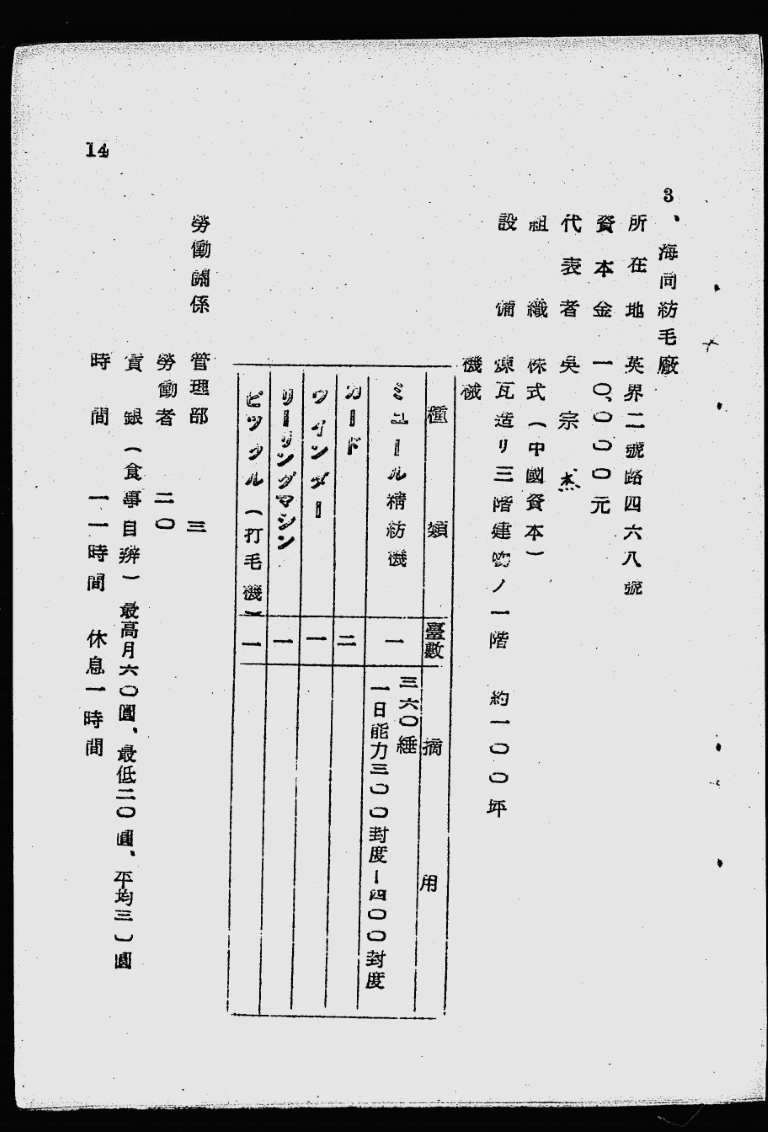 3、海同紡毛廠
所在地 英界二號路四六八號
資本金 一〇、〇〇〇元
代表者 吳宗杰
組織 株式（中國資本）
設備 煉瓦造リ三階建物ノ一階 約一〇〇坪
機械
種類 臺數 摘用
ミユール精紡機 一 三六〇錘
一日能力三〇〇封度ー四〇〇封度
カード 二
ワインダー 一
リーリングマシン 一
ピツクル（打毛機） 一
勞働關係 管理部 三
勞働者 二〇
賃銀（食事自辨） 最高月六〇圓、最低二〇圓、平均三〇圓
時間 一一時間 休息一時間
14